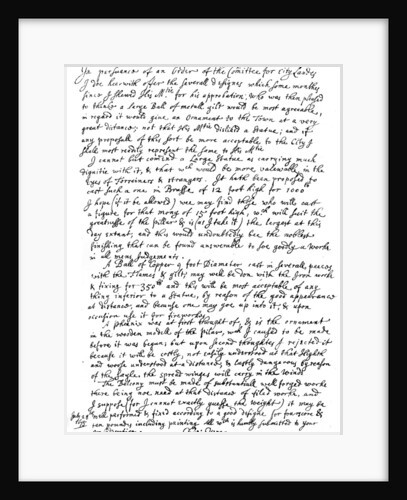 In persuance of an Order of the Comittee for City Landes
I doe heerwith offer the severall designes which some monthes
since I shewed His Mtie for his approbation, who was then pleased
to thinke a large Ball of metall gilt would be most agreeable,
in regard it would give an Ornament to the Town at a very
great distance; not that His Mtie disliked a Statue; and if
any proposall of this sort be more acceptable to the City I
shall most readily represent the same to His Mtie
I cannot but comend a Large Statue as carrying much
dignitie with it, & that wch would be more valewable in the
Eyes of Forreiners & strangers. It hath been proposed to
cast such a one in Brasse of 12 foot high for 1000
I hope (if it be allowed) wee may find those who will cast
a figure for that mony of 15 foot high, wch will suit the
greatnesse of the pillar & is (as I take it) the largest at this
day extant; and this would undoubtedly bee the noblest
finishing that can be found answerable to soe goodly a worke
in all mens Judgements.
A Ball of Copper, foot Diameter cast in severall peeces
with the Flames & gilt, may well be don with the Iron worke
& fixing for 350 and this will be most acceptable of any
thing inferior to a Statue, by reason of the good appearance
at distance, and because one may goe up into it; & upon
occasion use it for fireworkes.
A phoenix was at first thought of, & is the ornament
in the wooden modell of the pillar, wch I caused to be made
before it was begun; but upon second thoughtes I rejected it
because it will be costly, not easily understood at that Highth
and worse understood at a distance & lastly dangerous by reason
of the sayle the spread winges will carry in the Winde
The Balcony must be made of substantiall well forged worke
there being noe need at that distance of filed worke, and
I suppose (for I cannot exactly guesse the weight) it may be
well performed & fixed according to a good designe for fourscore &
ten poundes including painting. All wch is humbly submitted to your